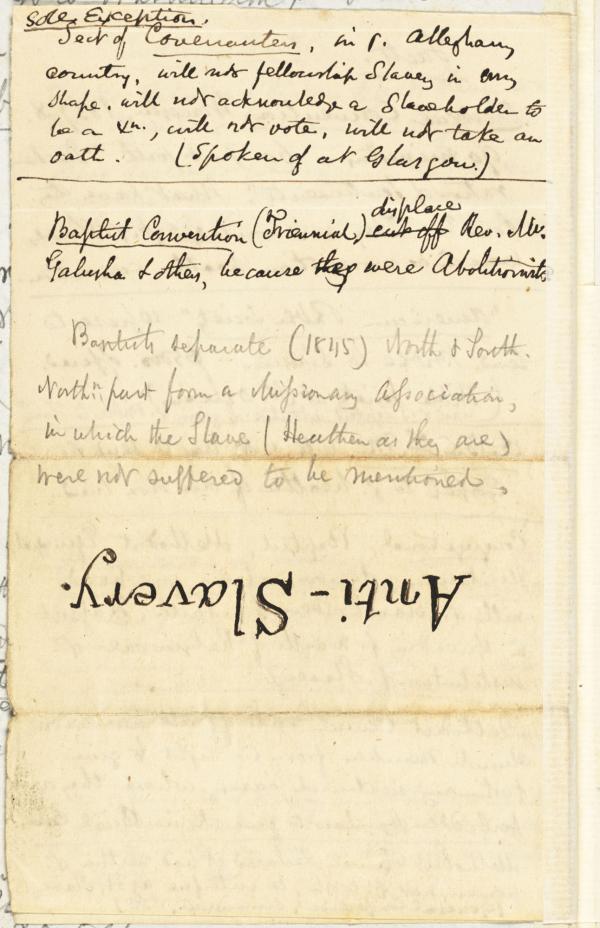 Sole Exception.
Sect of Covenanters, in ye. Alleghany
country, will not fellowship Slavery in any
shape, will not acknowledge a Slaveholder to
be a Xn., will not vote, will not take an
oath. (Spoken of at Glasgow.)
displace
Baptist Convention (Triennial,) cut off Rev. Mr.
Galusha & others, because they were Abolitionists
Baptists separate (1845) North & South.
Northn. part form a Missionary Association,
in which the Slave (Heathen as they are)
were not suffered to be mentioned.
Anti-Slavery.